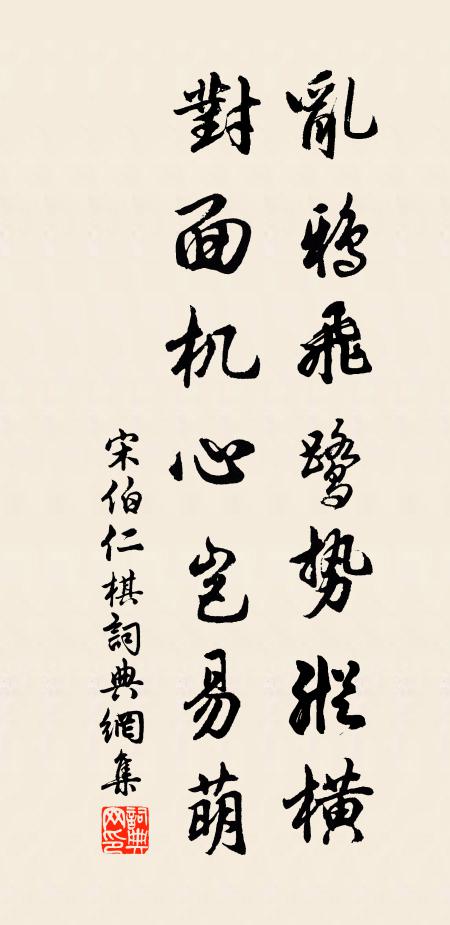 亂鴉飛鷺勢縱橫
對面机心豈易萌
宋伯仁棋詞典網集
詞典網印